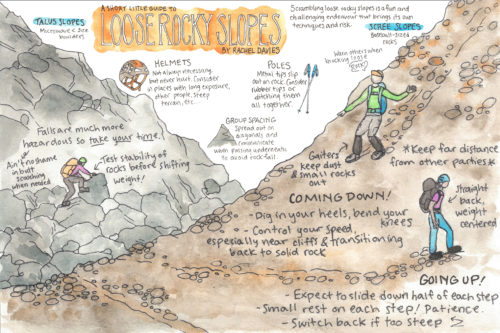 A SHORT LITTLE GUIDE TO
LOOSE ROCKY SLOPES
BY RACHEL DAVIES
Scrambling loose rocky slopes is a fun and
challenging endeavour that brings its own
techniques and risk.
TALUS SLOPES
Microwave & size
boulders
SCREE SLOPES
Baseball-sized
rocks
HELMETS
Not always necessary,
but never hurt. Consider
in places with long exposure,
other people, steep
terrain, etc.
POLES
Metal tips slip
out on rock. Consider
rubber tips or
ditching them
all together.
Warn others when
knocking loose
rock!
GROUP SPACING
Spread out on
diagonals and
communicate
when passing underneath
to avoid rockfall
Falls are much more
hazardous so take your time!
Ain't no shame
in butt
scooching
when needed
Test stability of
rocks before shifting
weight!
Gaiters
keep dust
& small rocks
out
*Keep far distance
from other parties*
COMING DOWN!
- Dig in your heels, bend your
knees
- Control your speed,
especially near cliffs & transitioning
back to solid rock
Straight
back,
weight
centered
GOING UP!
- Expect to slide down half of each step
- Small rest on each step! Patience.
- Switch back if too steep